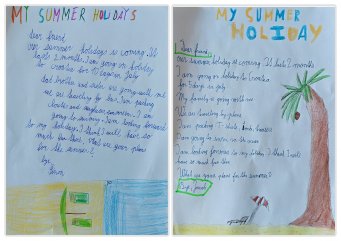 MY SUMMER HOLIDAYS
Dear friend
our summer holidays is coming. It
lasts 2 months. I am going on holiday
to Croatia for 10 days in July.
and brother and sister are going with me.
we are travelling by car. I am packing
and I am
going to swim. I am looking forward
to my holidays. I think I will have so
much fun there. What are your plans
for the summer?
bye,
MY SUMMER
HOLIDAY
Dear friend,
our summer holiday is coming. It lasts 2 months
I am going on holiday to Croatia
for 7 days in July.
My family is going with me
We are travelling by plane
I am packing T-shirts, shorts
I am going to swim in the ocean
I am looking forward to my holiday. I think I will
have so much fun there.
What are your plans for the summer?
Bye,